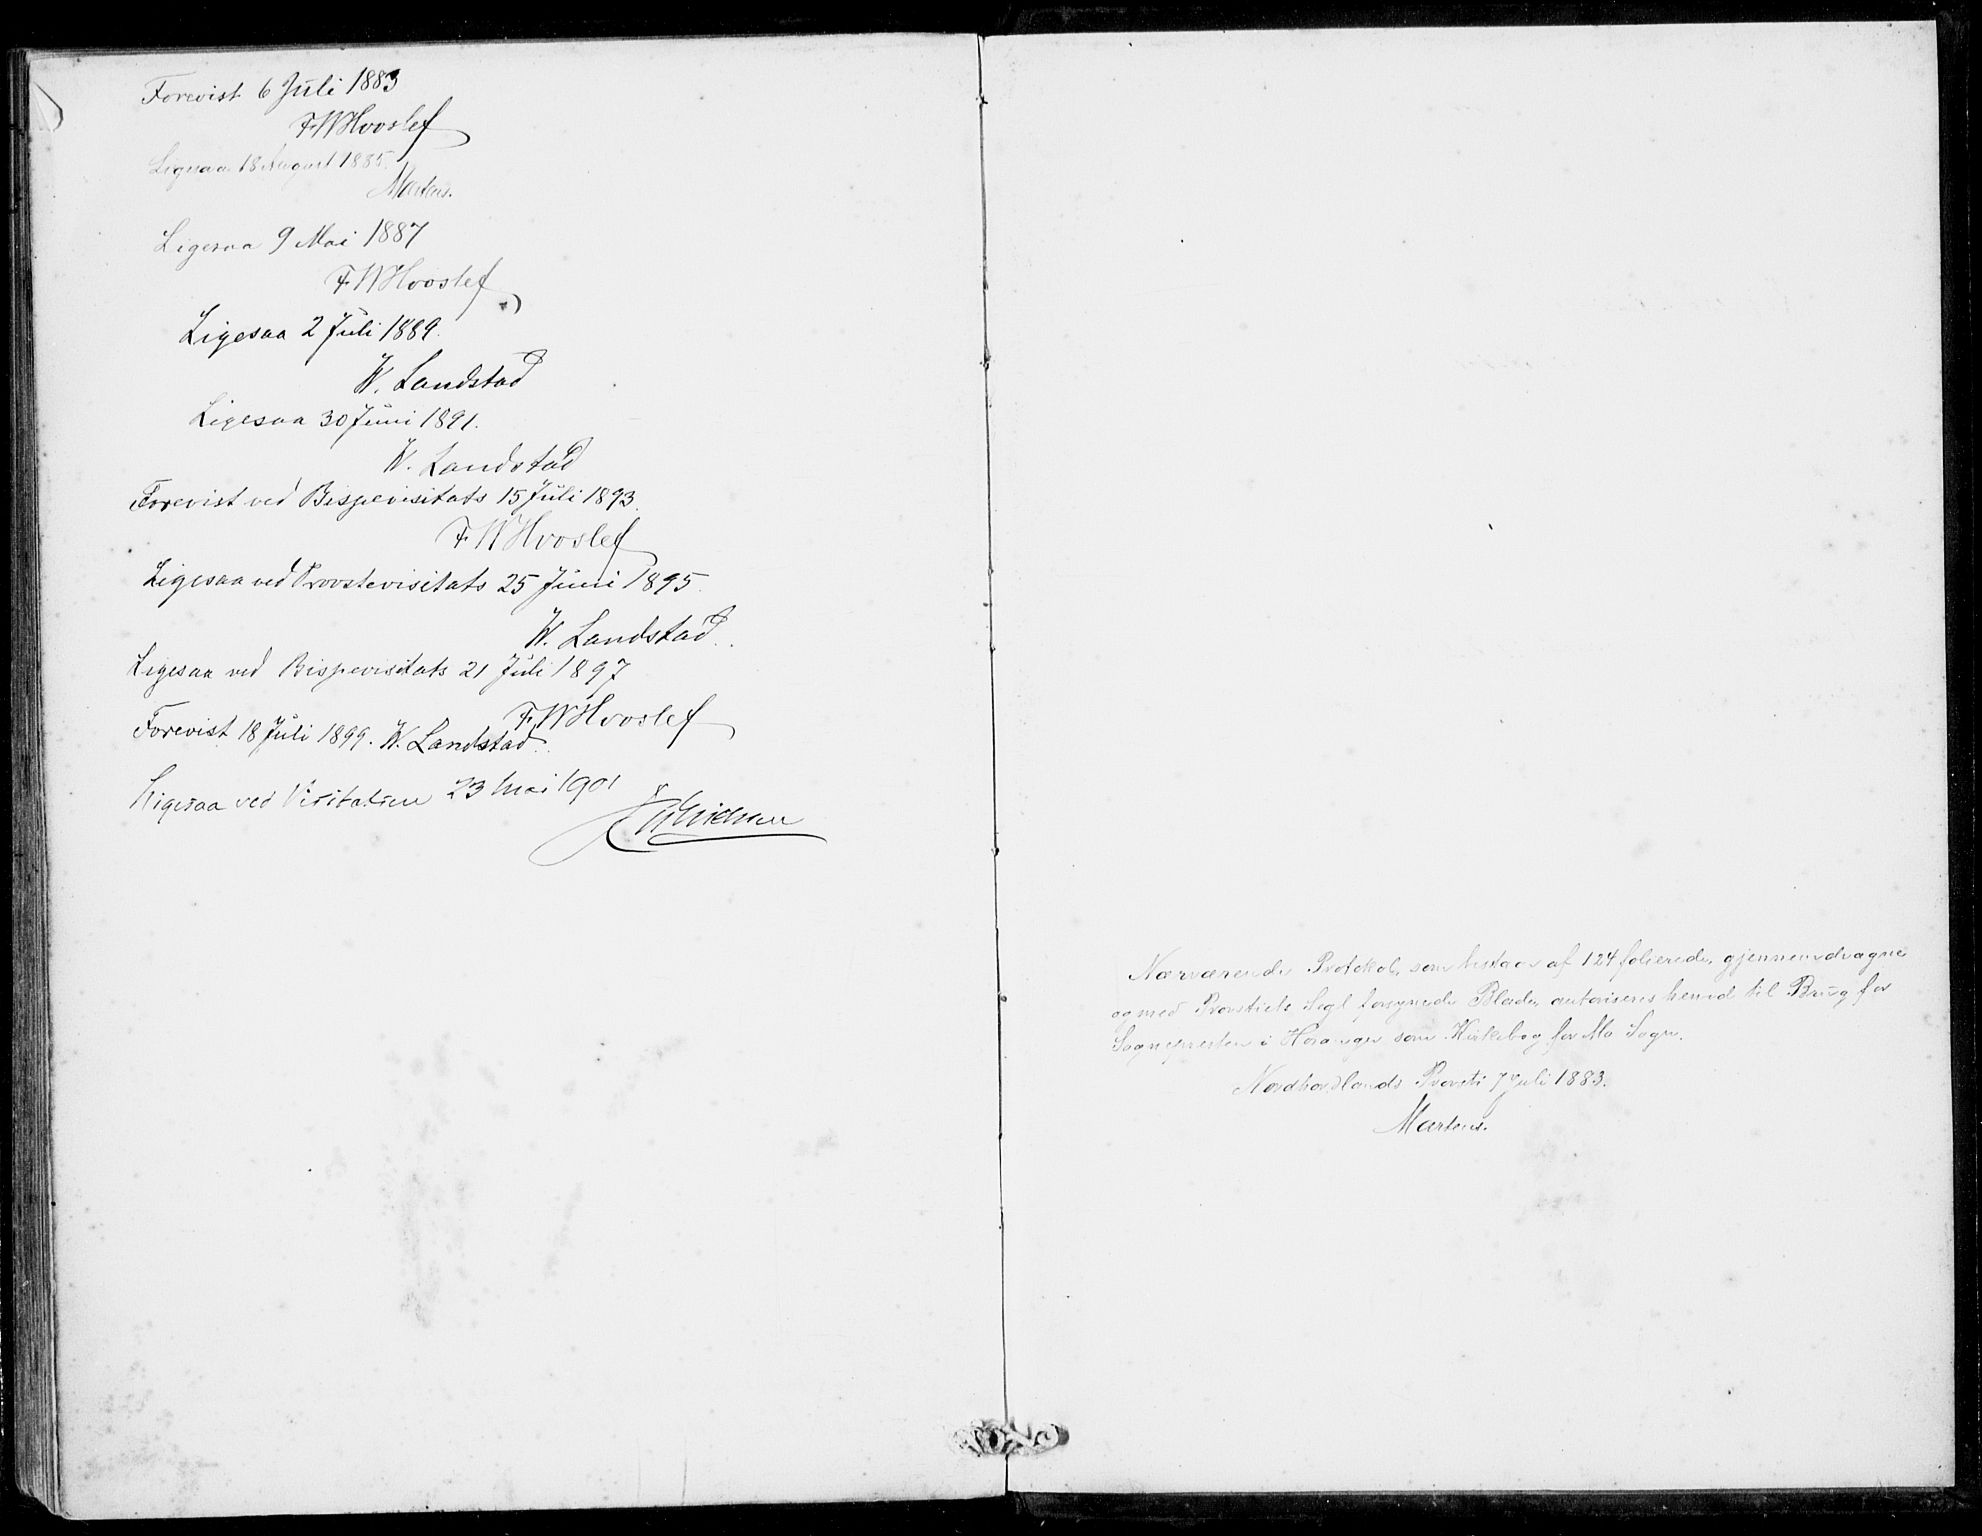 Forevist 6 Juli 1883
FWHvoslef
Ligesaa 18 August 1885.
Martens.
Ligesaa 9 Mai 1887
FWHvoslef
Ligesaa 2 Juli 1889.
W. Landstad
Ligesaa 30 Juni 1891.
W. Landstad
Forevist ved Bispevisitats 15 Juli 1893.
FWHvoslef
Ligesaa ved Provstevisitats 25 Juni 1895.
W. Landstad.
Ligesaa ved Bispevisitats 21 Juli 1897
FWHvoslef
Forevist 18 Juli 1899. W. Landstad.
Ligesaa ved Visitatsen 23 Mai 1901
Nærværende Protokol, som bestaar af 124 folierede, gjennemdragne
og med Provstiets Segl forsynede Blade, autoriseres herved til Brug for
Sognepresten i Hosanger som Kirkebog for Mo Sogn.
Nordhordlands Provsti 7 Juli 1883.
Martens.